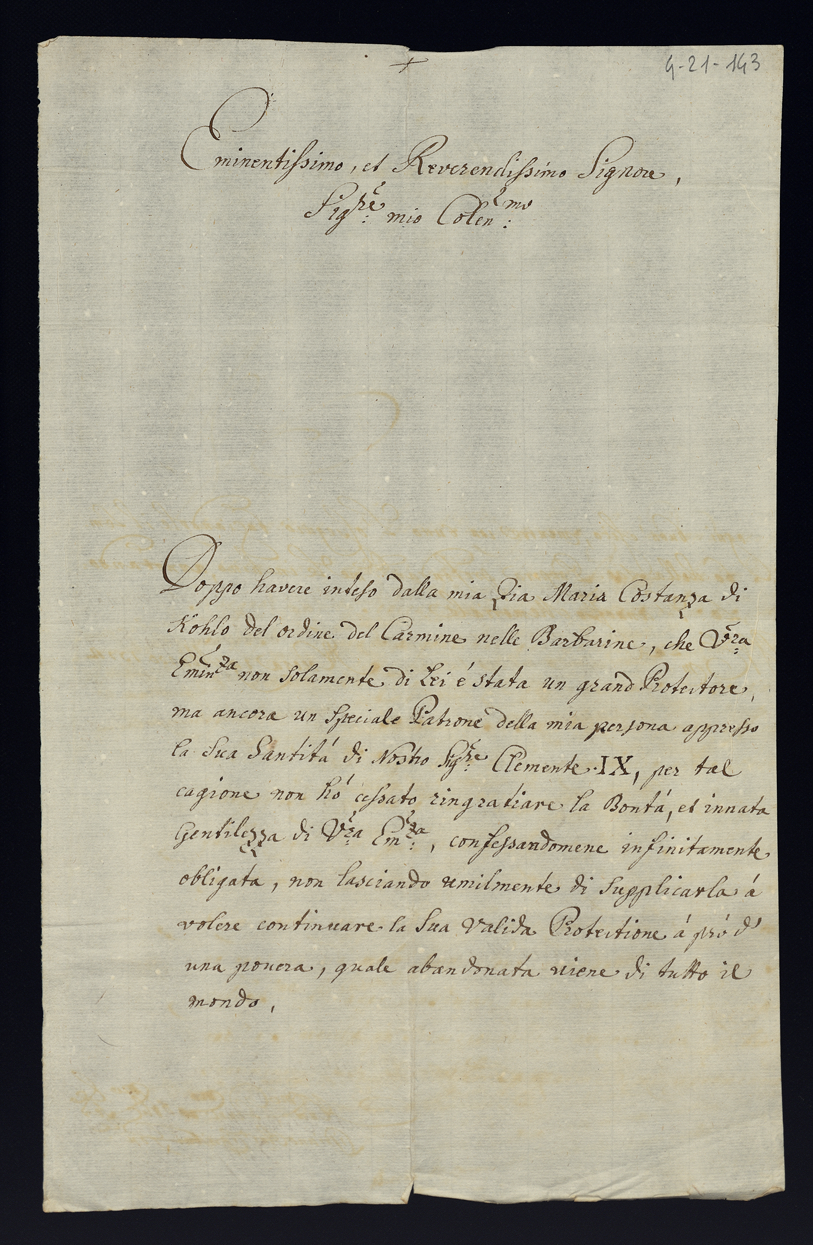 4-21-143
+
Eminentissimo, et Reverendissimo Signore,
Sig:re mio Colen:mo
Doppo havere inteso dalla mia Zia Maria Costanza di
Kohlo del ordine del Carmine nelle Barbarine, che V:ra
Emin:za non solamente di Lei é stata un grand Protectore,
ma ancora un speciale Patrone della mia persona appresso
la Sua Santitá di Nostro Sig:re Clemente IX, per tal
cagione non hó cessato ringratiare la Bontá, et innata
Gentilezza di V:ra Em:za, confessandomene infinitamente
obligata, non lasciando umilmente di supplicarla á
volere continuare la Sua valida Protectione á pró d'
una povera, quale abandonata viene di tutto il
mondo,